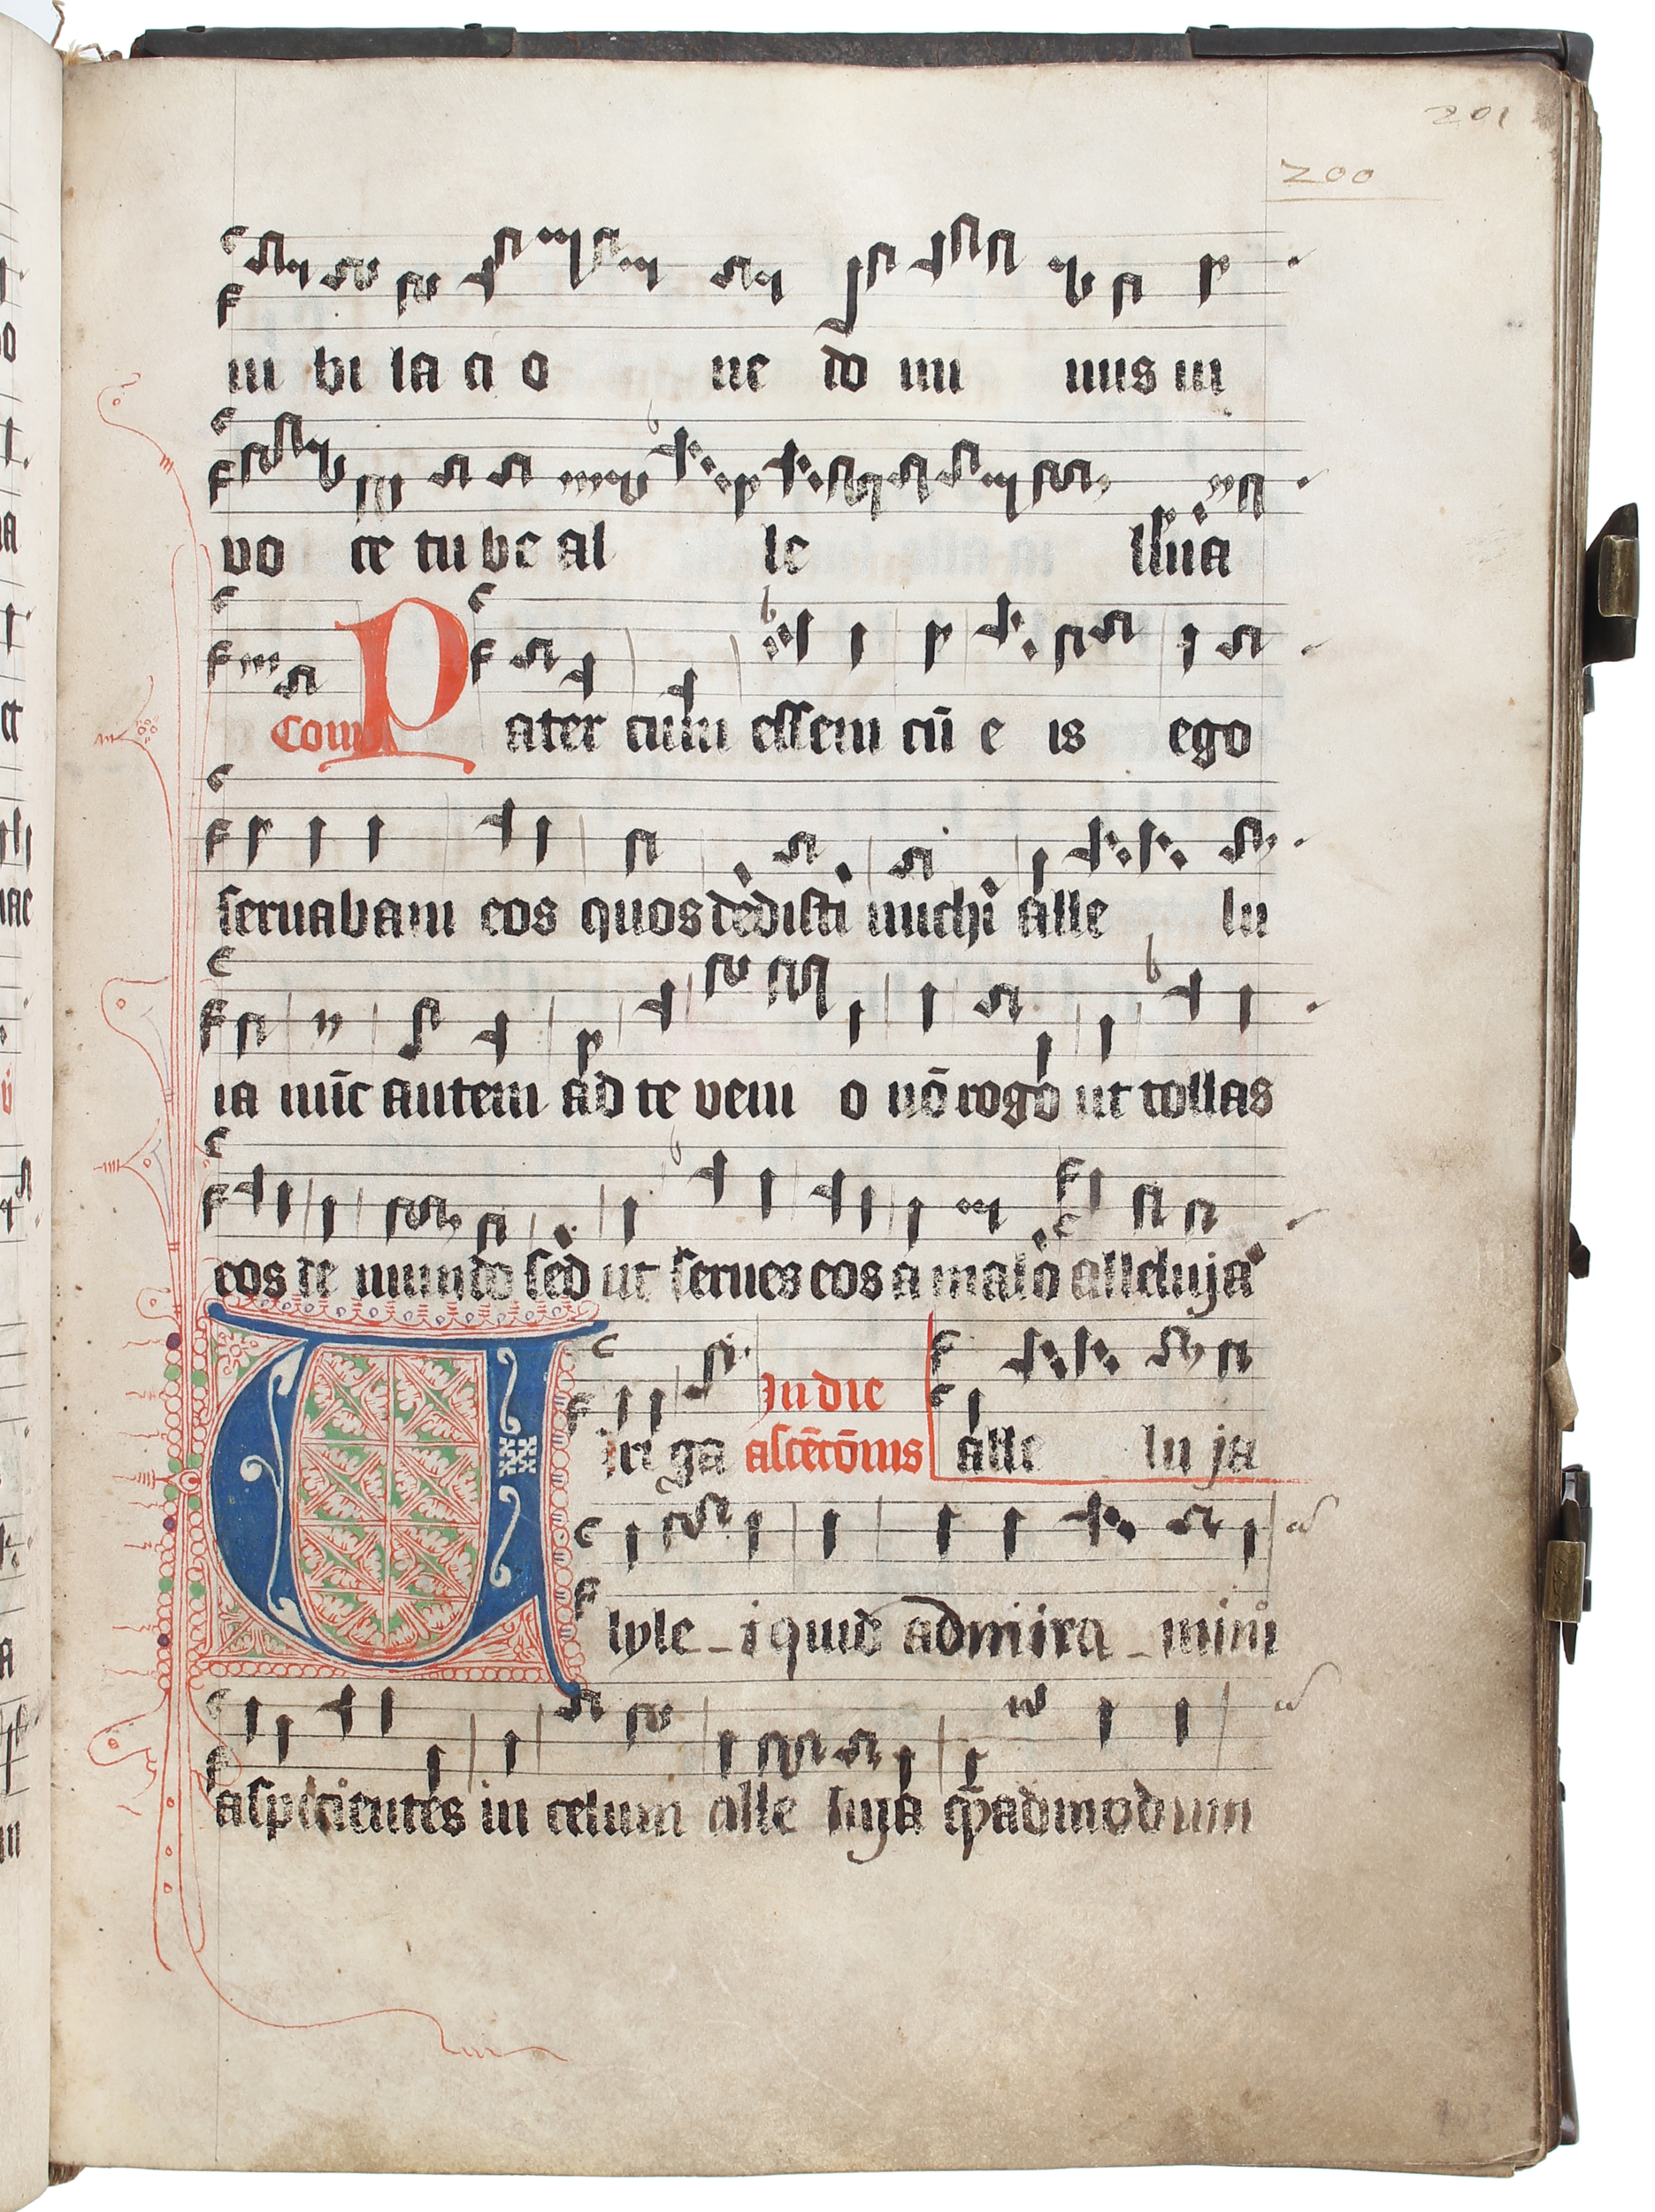 201
200
iu bi la ci o ne do mi nus in
vo ce tube al le lluia
Com̄ Pater cum essem cū e is ego
seruabam eos quos dedisti michi alle lu
ia nūc autem ad te veni o nō rogo ut tollas
eos de mundo sed ut serues eos a malo alleluja
In die
Viri ga ascēcōnis alle lu ja
lyle - i quid admira - mini
aspicientes in celum alle luya qᷓadmodum